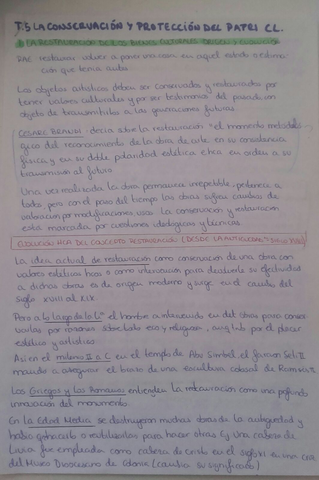 T.5 LA CONSERVACIÓN Y PROTECCIÓN DEL PATRI CL.
LA RESTAURACIÓN DE LOS BIENES CULTURALES. ORIGEN Y EVOLUCIÓN
RAE restaurar: volver a poner una cosa en aquel estado o estima-
ción que tenía antes
Los objetos artísticos deben ser conservados y restaurados por
tener valores culturales y por ser testimonios del pasado con
objeto de transmitirlos a las generaciones futuras
CESARE BRANDI: decía sobre la restauración "el momento metodoló-
gico del reconocimiento de la obra de arte en su consistencia
física y en su doble polaridad estética e hca en orden a su
transmisión al futuro
Una vez realizada la obra permanece irrepetible, pertenece a
todos pero con el paso del tiempo las obras sufren cambios de
valoración por modificaciones, usos. La conservación y restauración
esta marcada por cuestiones ideológicas y técnicas
EVOLUCIÓN HCA DEL CONCEPTO RESTAURACIÓN (DESDE LA ANTIGÜEDAD
La idea actual de restauración como conservación de una obra con
valores estéticos hcos o como intervención para devolverle su efectividad
a dichas obras es de origen moderno y surge en el cambio del
siglo XVIII al XIX
Pero a lo largo de la Hª el hombre a intervenido en det obras para conser
varlas por razones sobre todo eco y religiosas, aunq tb por el placer
estético y artístico.
Asi en el milenio II a.C en el templo de Abu Simbel, el faraon Seti II
mandó a asegurar el brazo de una escultura colosal de Ramses II
Los Griegos y los Romanos entienden la restauración como una profunda
innovación del monumento.
En la Edad Media se destruyeron muchas obras de la antigüedad y
había q reutilizarlas para hacer otras. Ej Una cabeza de
Livia fue empleada como cabeza de cristo en el siglo XI en una cruz
del Museo Diocesano de Colonia (cambia su significado)